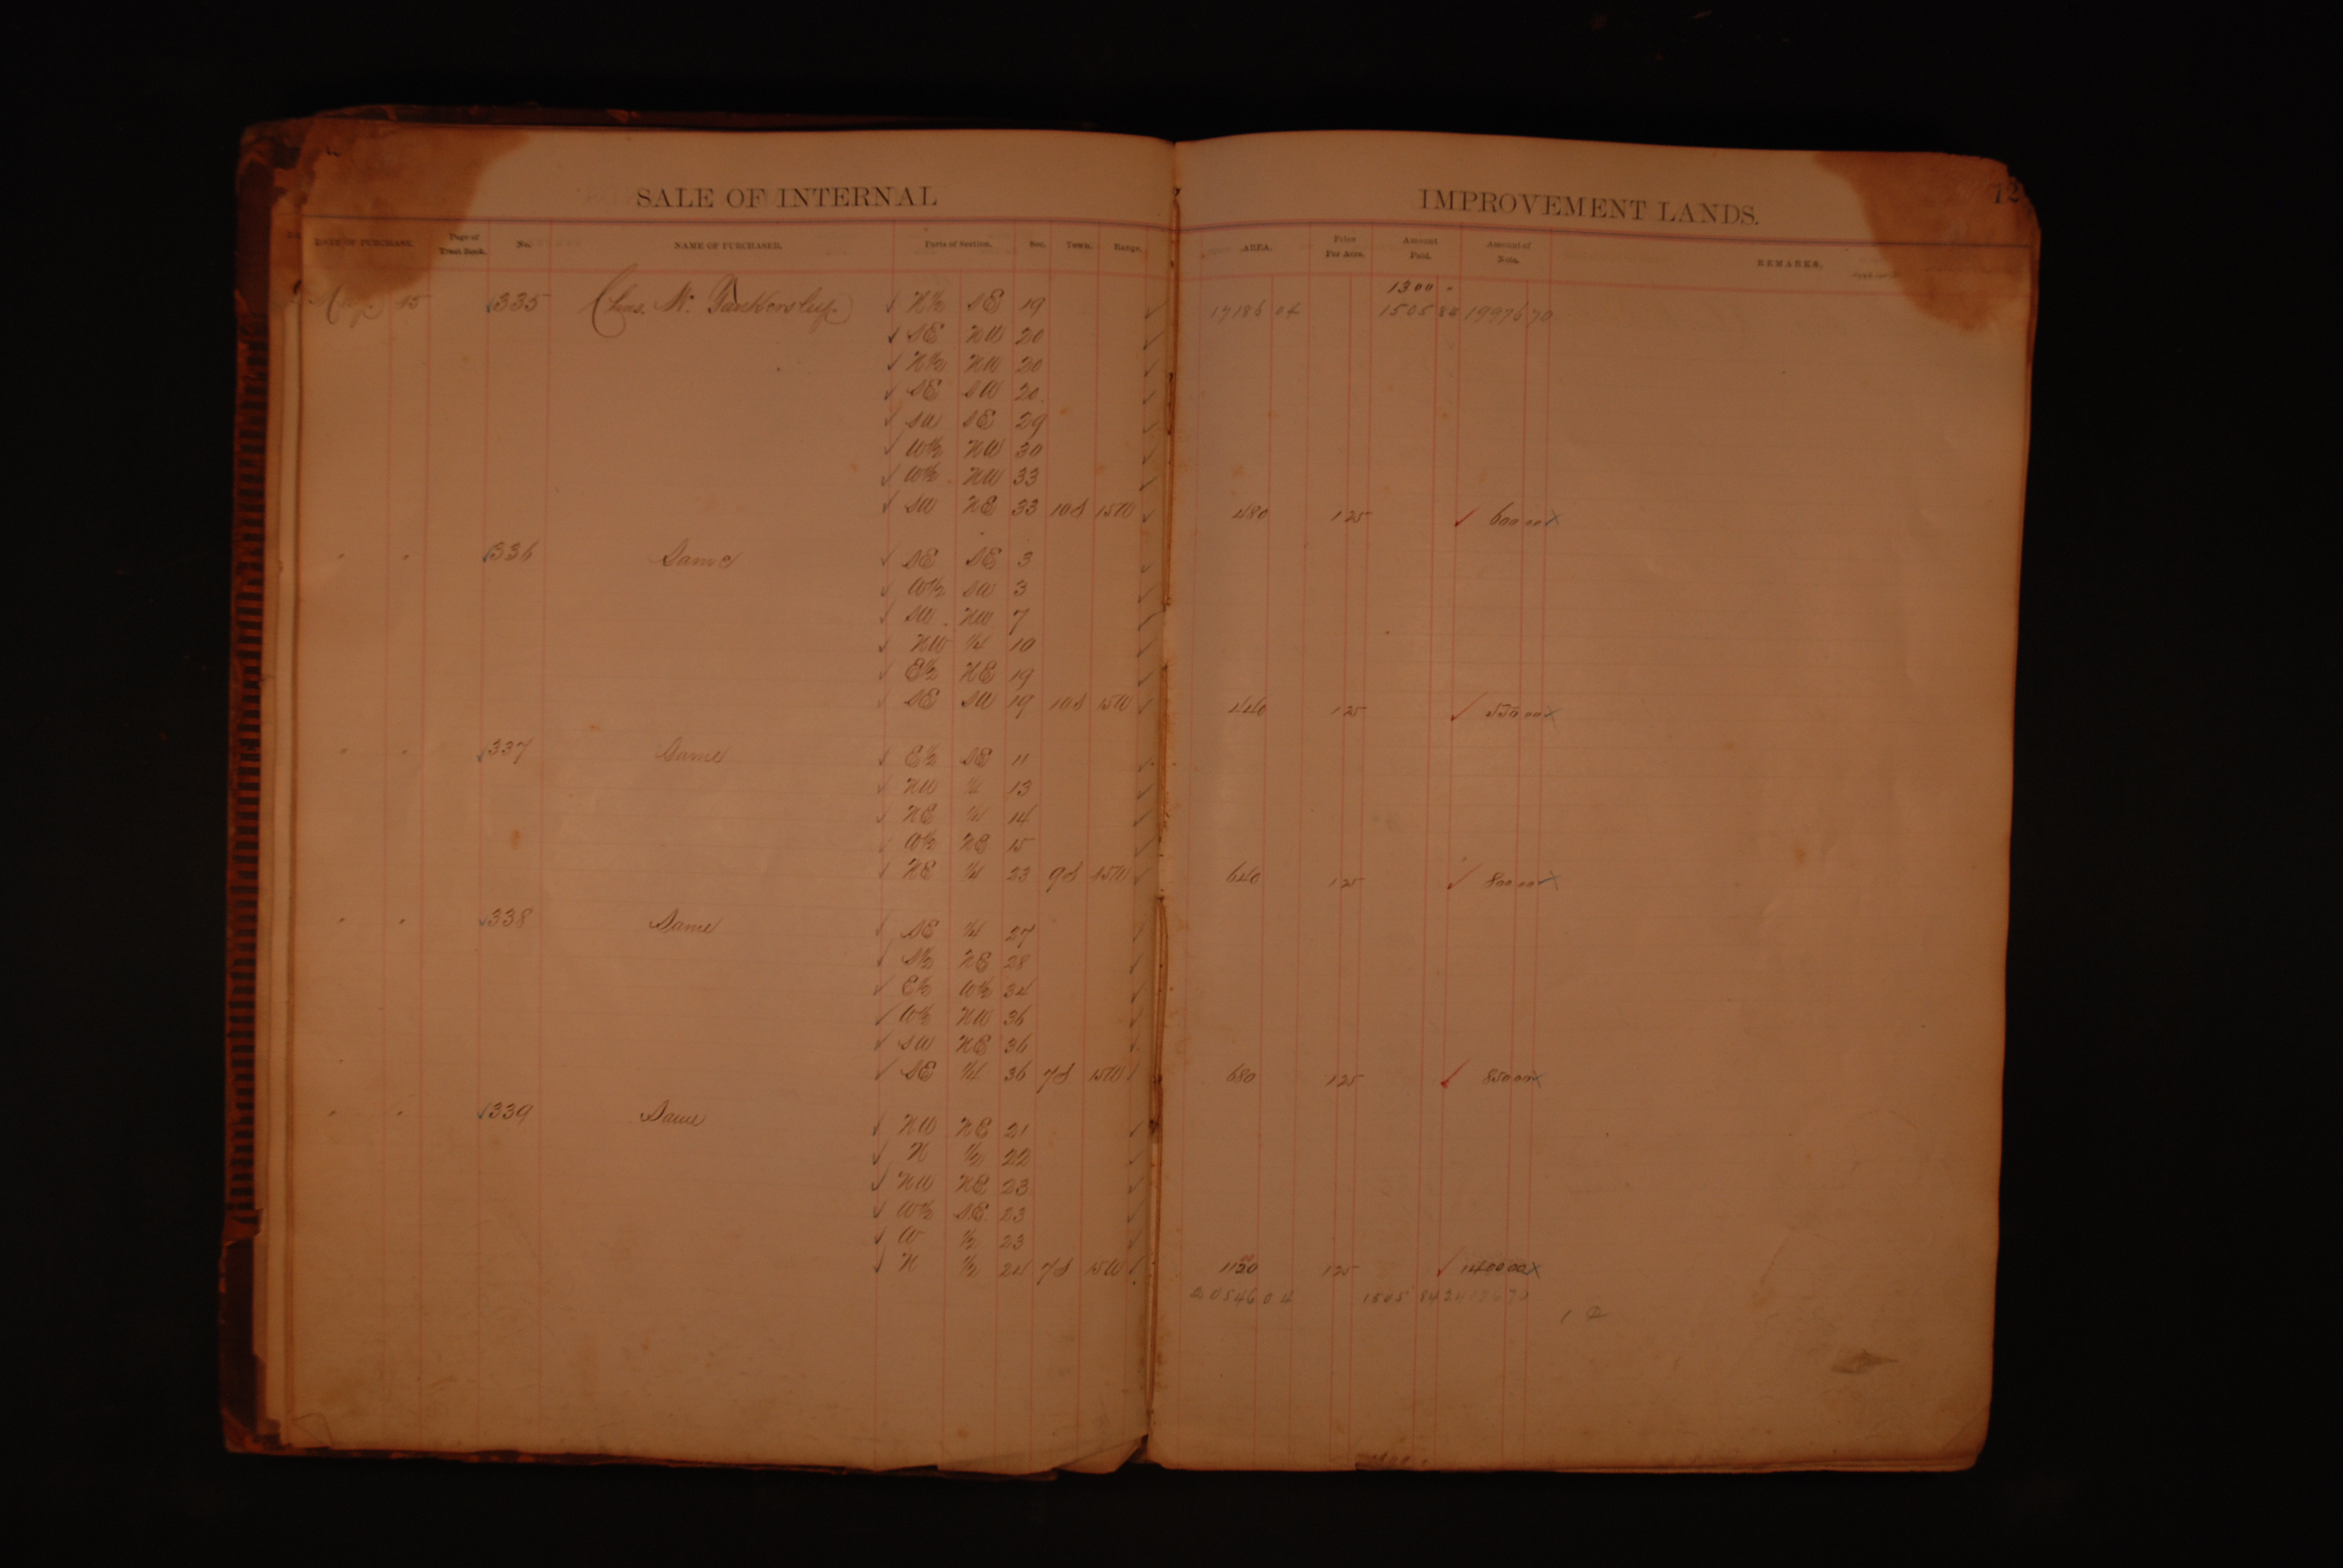 SALE OF INTERNAL IMPROVEMENT LANDS. 12
DATE OF PURCHASE. Page of Tract Book. No. NAME OF PURCHASER. Parts of Section. Sec. Town. Range. AREA. Price Per Acre. Amount Paid. Amount of Note. REMARKS.
1300
15 335 Chas. N½ SE 19 17186 04 1505 84 19976 70
SE NW 20
N½ NW 20
SE SW 20
SW SE 29
W½ NW 30
W½ NW 33
SW NE 33 10S 15W 480 1 25 600 00 X
" " 336 Same SE SE 3
W½ SW 3
SW NW 7
NW ¼ 10
E½ NE 19
SE SW 19 10S 15W 440 1 25 550 00 X
" " 337 Same E½ SE 11
NW ¼ 13
NE ¼ 14
W½ NE 15
NE ¼ 23 9S 15W 640 1 25 800 00 X
" " 338 Same SE ¼ 27
S½ NE 28
E½ W½ 34
W½ NW 36
SW NE 36
SE ¼ 36 7S 15W 680 1 25 850 00 X
" " 339 Same NW NE 21
N ½ 22
NW NE 23
W½ S.E. 23
W ½ 23
N ½ 24 7S 15W 1120 1 25 1400 00 X
20546 04 1505 84 24176 70